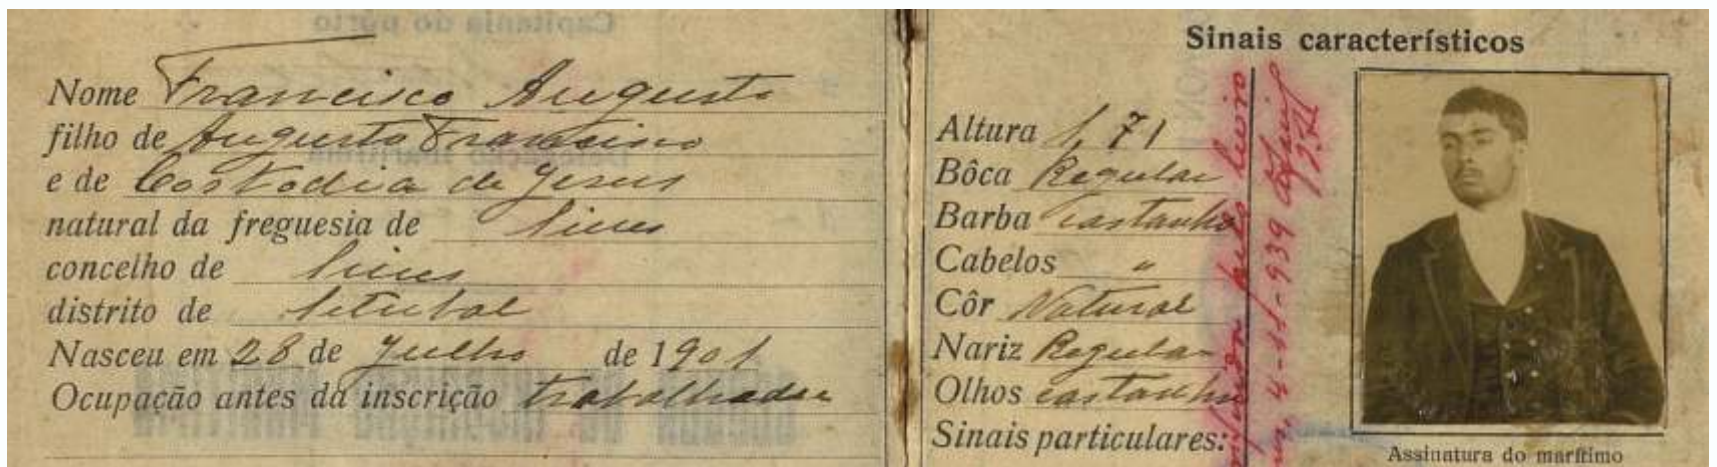 Nome Francisco Augusto
filho de Augusto Francisco
e de Costodia de Jesus
natural da freguesia de Sines
concelho de Sines
distrito de Setubal
Nasceu em 28 de Julho de 1901
Ocupação antes da inscrição trabalhador
Sinais característicos
Altura 1,71
Bôca Regular
Barba Castanho
Cabelos "
Côr Natural
Nariz Regular
Olhos castanho
Sinais particulares:
pelo livro
4-11-939
Assinatura do marítimo